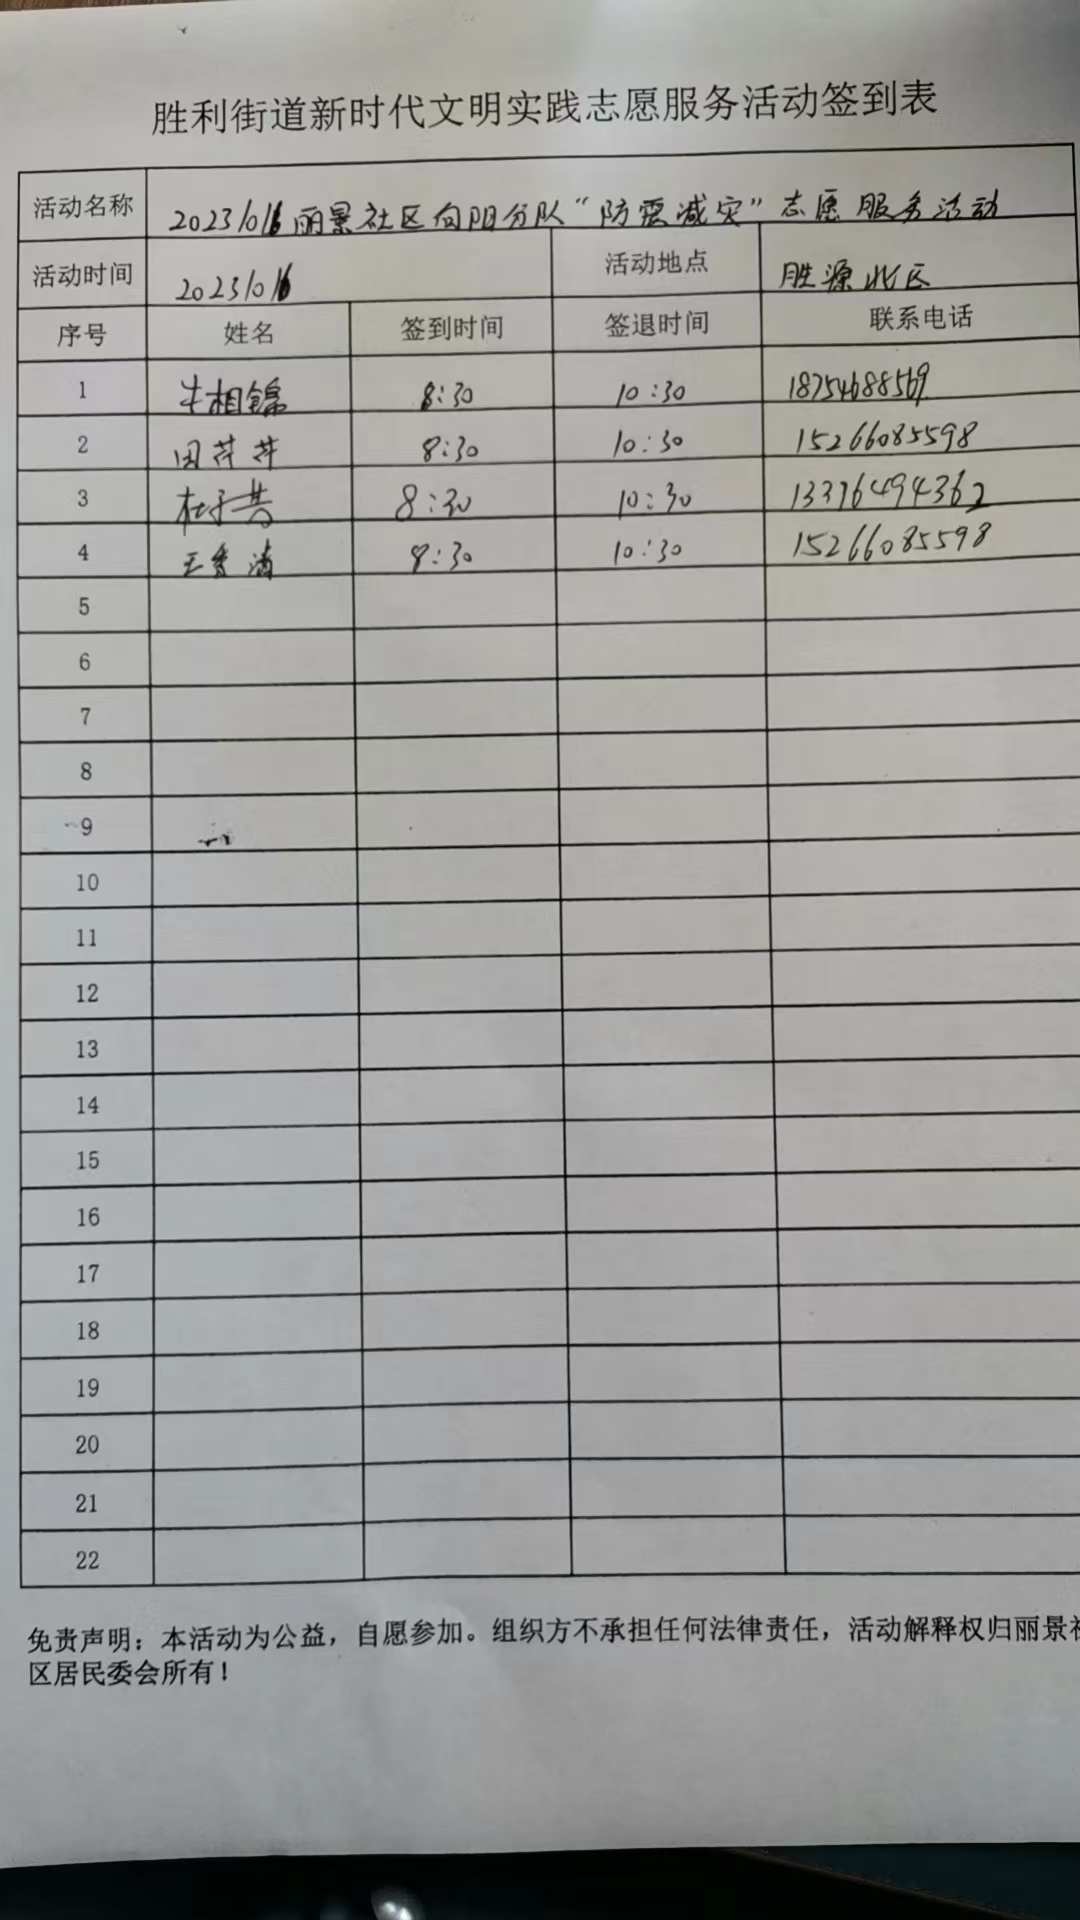 胜利街道新时代文明实践志愿服务活动签到表
活动名称 20231016丽景社区向阳分队“防震减灾”志愿服务活动
活动时间 20231016 活动地点 胜源北区
序号 姓名 签到时间 签退时间 联系电话
1 牛相锦 8:30 10:30 18754688569
2 田芹芹 8:30 10:30 15266085598
3 8:30 10:30 13376494362
4 王秀清 8:30 10:30 15266085598
5
6
7
8
9
10
11
12
13
14
15
16
17
18
19
20
21
22
免责声明：本活动为公益，自愿参加。组织方不承担任何法律责任，活动解释权归丽景社
区居民委会所有！